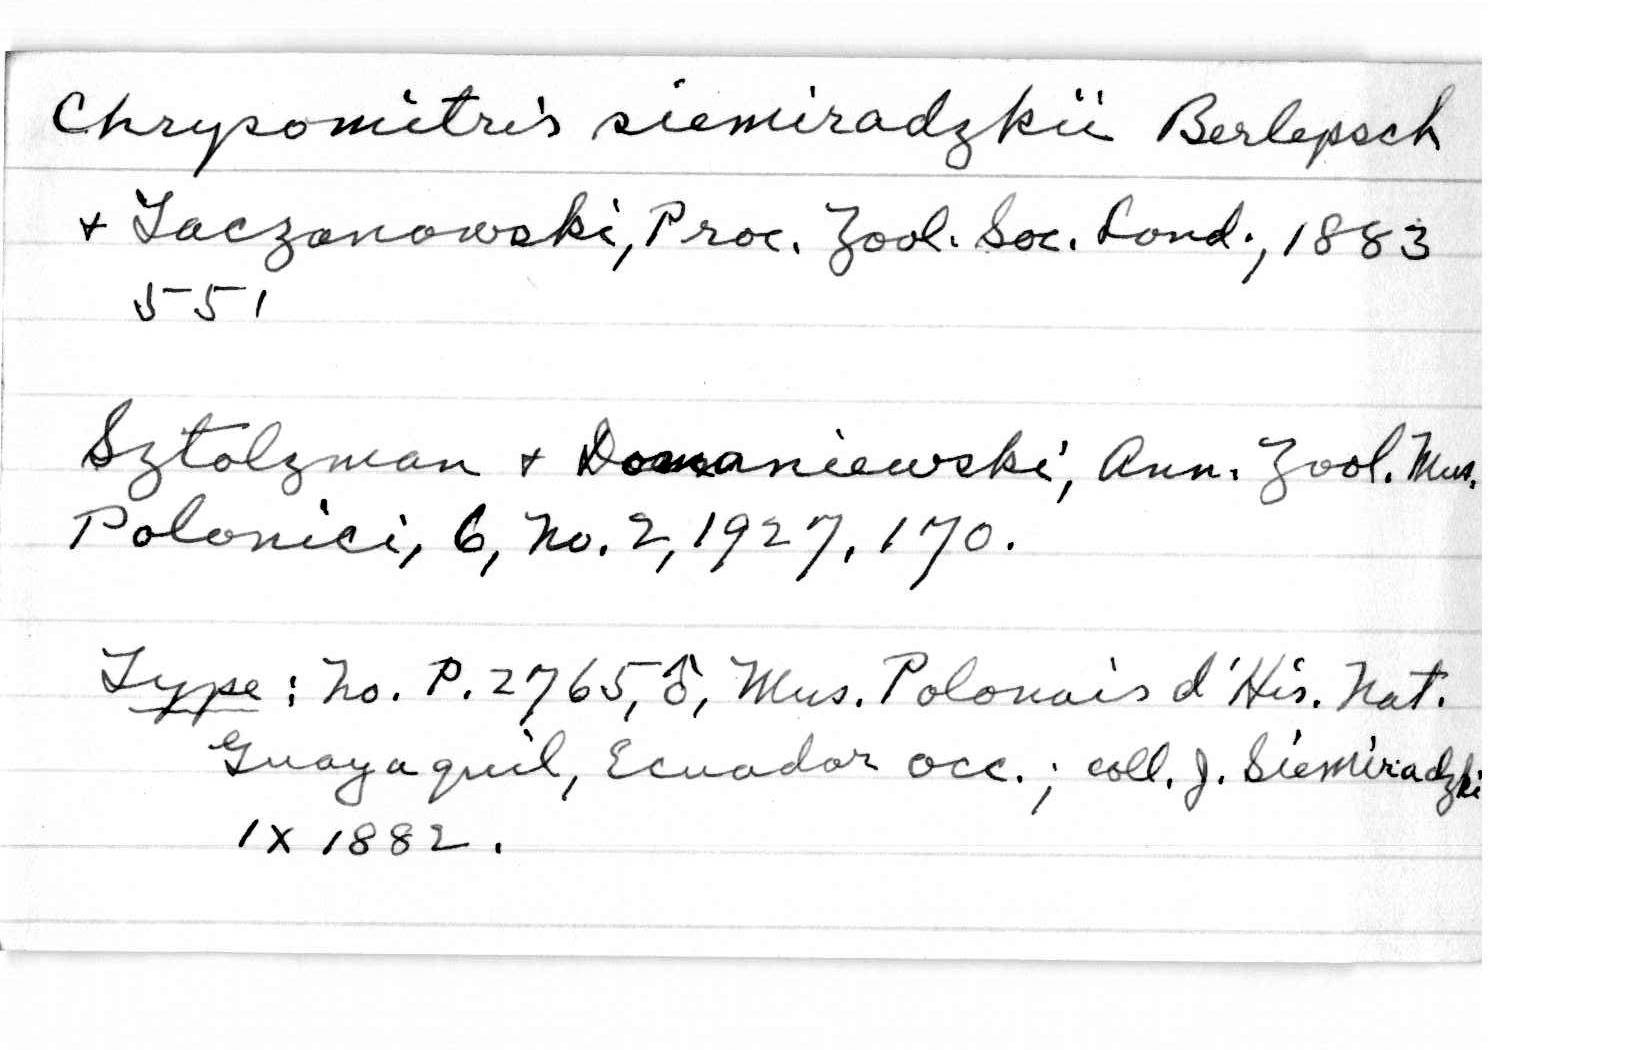 Chrysomitris siemiradzkii Berlepsch
+ Taczanowski, Proc. Zool. Soc. Lond., 1883
551
Sztolzman + Domaniewski, Ann. Zool. Mus.
Polonici, 6, no. 2, 1927, 170.
Type: no. P. 2765, ♂, Mus. Polonais d'His. Nat.
Guayaquil, Ecuador occ.; coll. J. Siemiradzki
IX 1882.